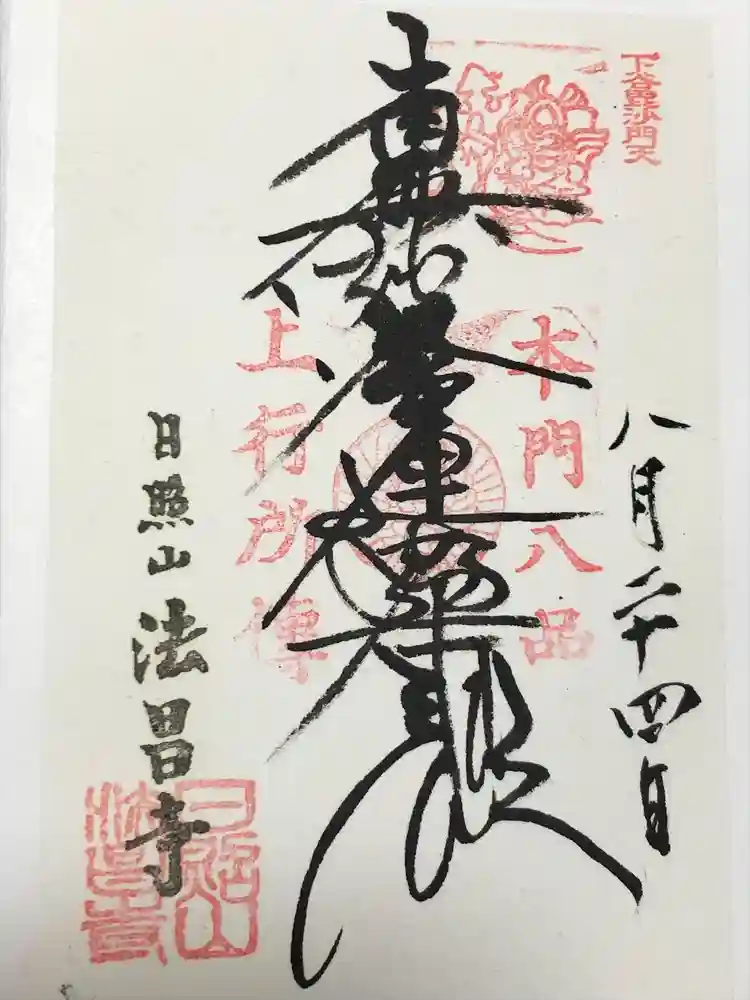 下谷毘沙門天
八月二十四日
本門八品
南無妙法蓮華経
上行所傳
日照山 法昌寺
日照山
法昌寺